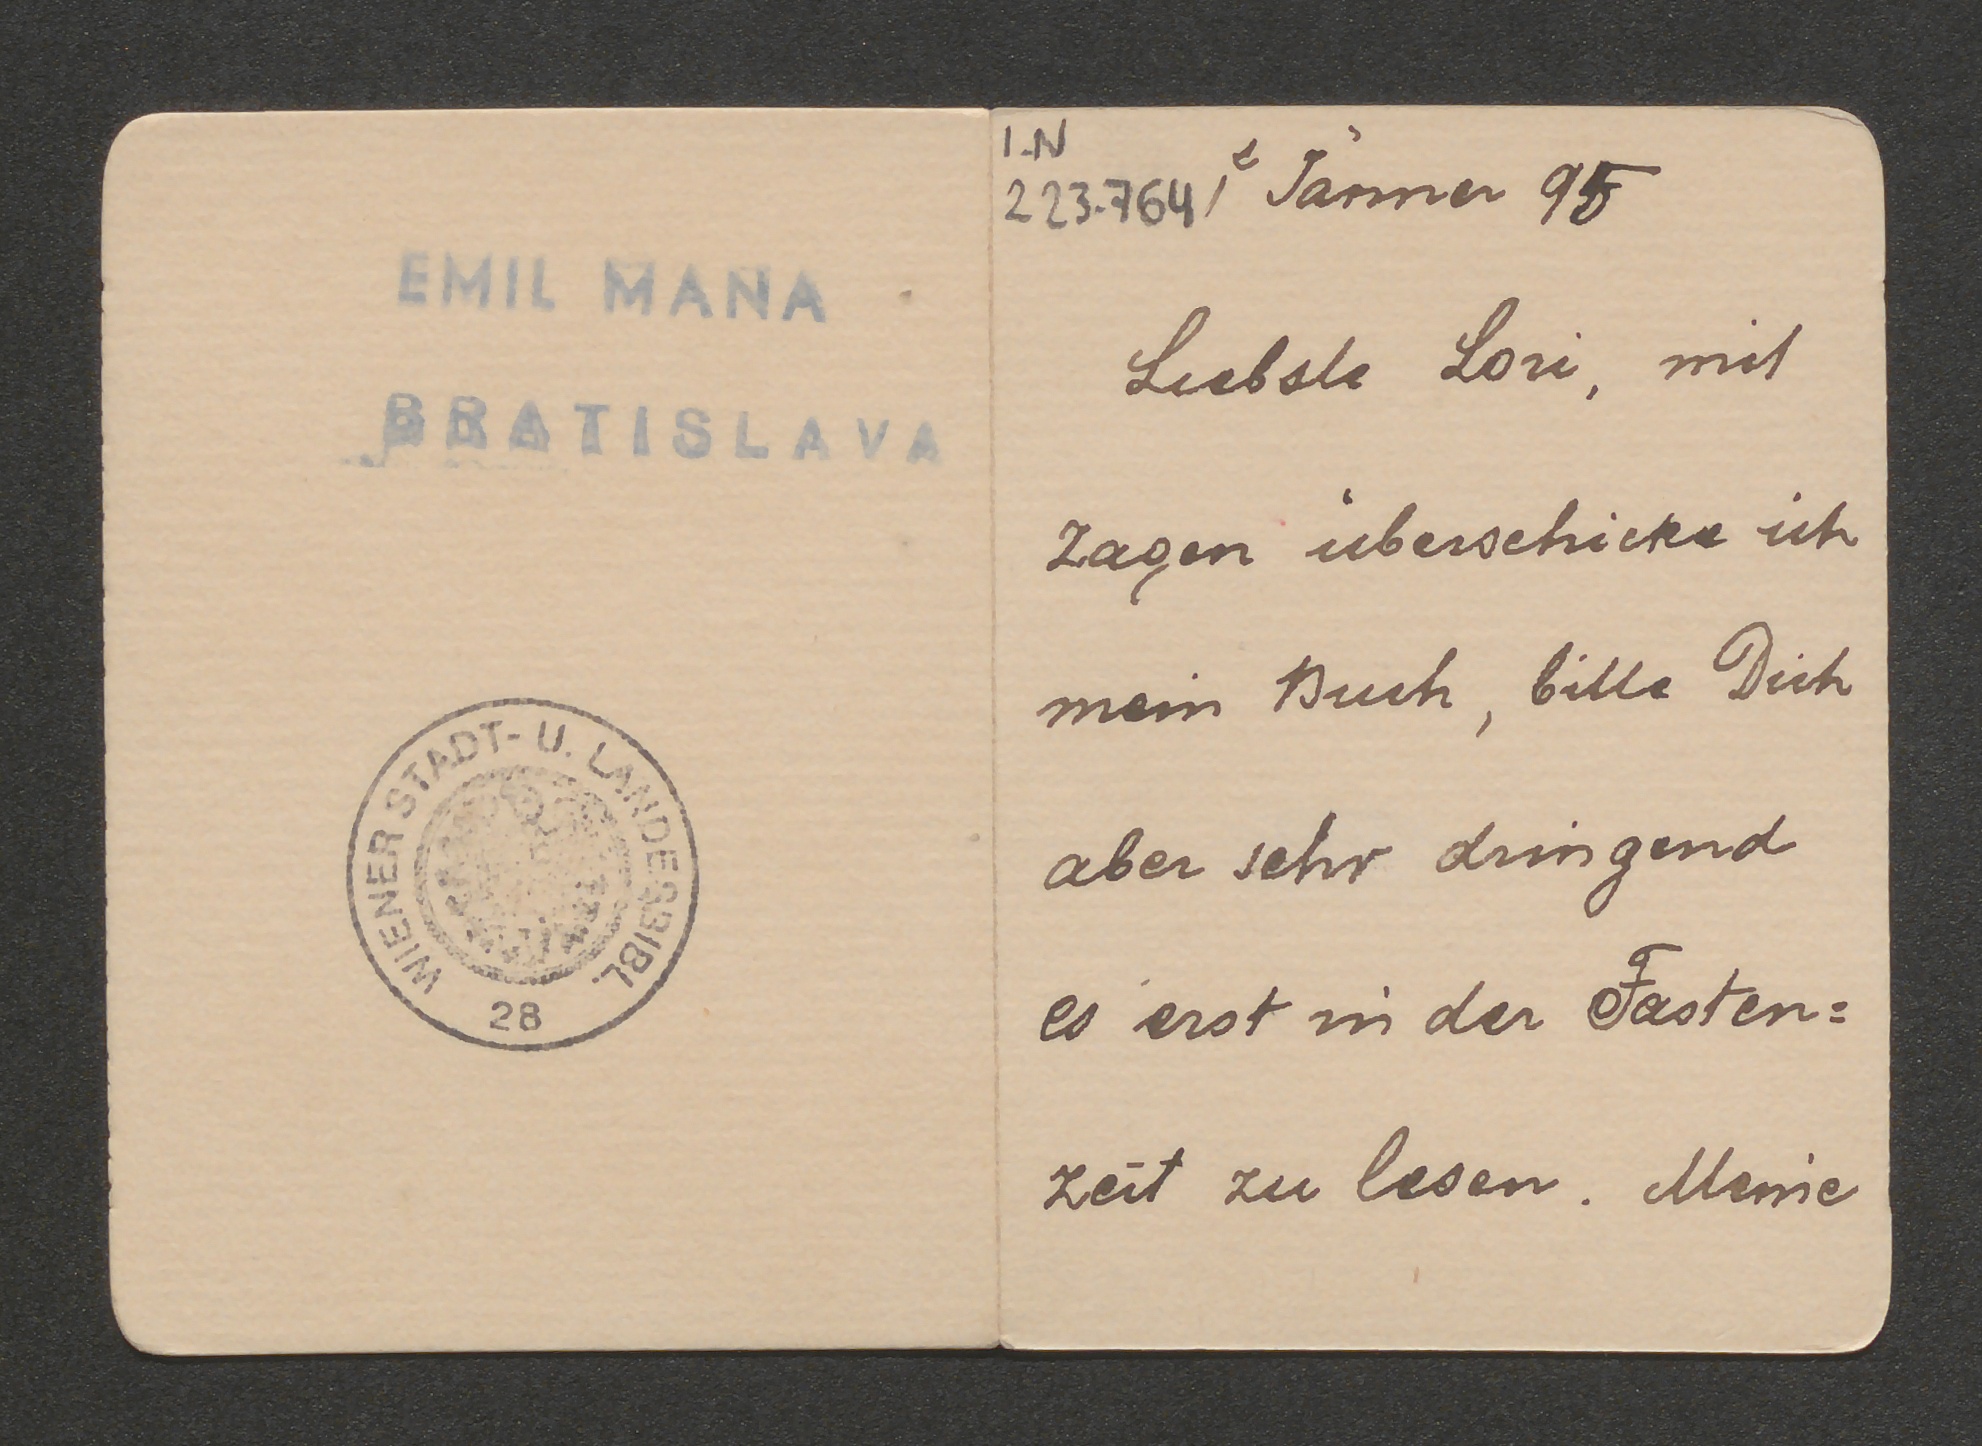 EMIL MANA
BRATISLAVA
WIENER STADT- U. LANDESBIBL.
28
I.N
223.764
1t Jänner 95
Liebste Lori, mit
Zagen überschicke ich
mein Buch, bitte Dich
aber sehr dringend
es erst in der Fasten=
zeit zu lesen. Meine